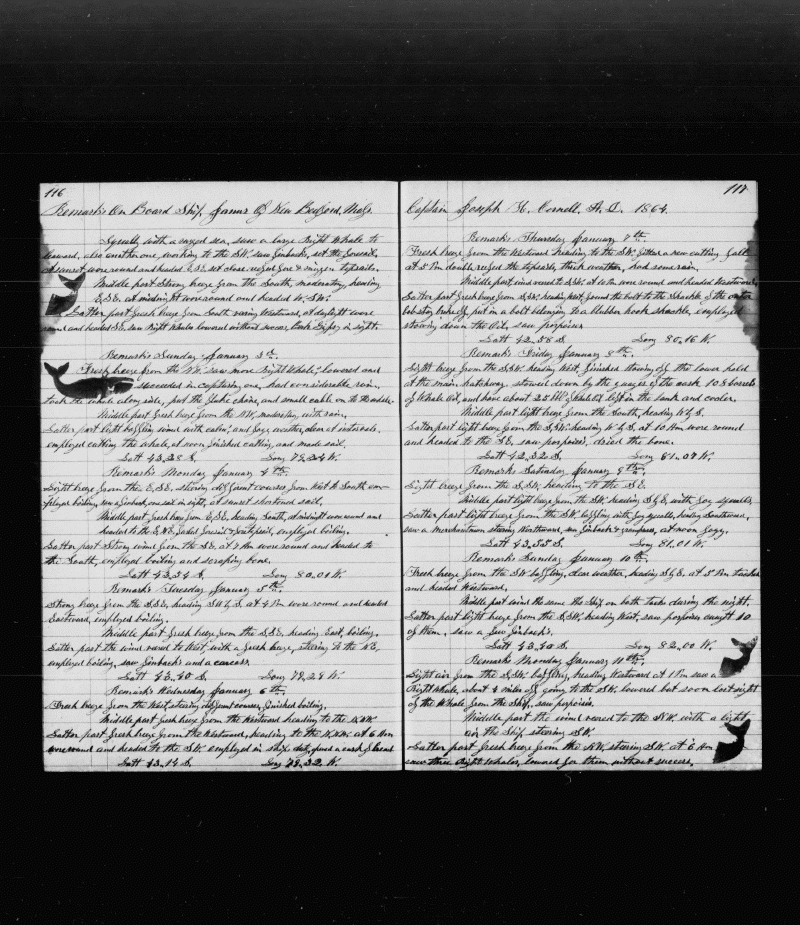 116
Remarks On Board Ship James Of New Bedford, Mass.
Squally with a rugged sea, saw a large Right Whale to
leeward, also another one, working to the SW. saw finbacks, set the foresail.
At sunset wore round and headed E.SE. set close reefed fore & mizzen topsails.
Middle part Strong breeze from the South, moderating, heading
E,SE. at midnight wore round and headed W. SW.
Latter part fresh breeze from South varing Westward, at daylight wore
round and headed SE, saw Right Whales lowered without success, bark Gipsy in sight.
Remarks Sunday January 3rd.
Fresh breeze from the NW, saw more Right Whales, lowered and
succeeded in capturing one, had considerable rain,
took the whale along side, put the fluke chain, and small cable on to the whale.
Middle part fresh breeze from the NW, moderating, with rain.
Latter part light baffling winds with calms, and foggy weather, clear at intervals,
employed cutting the whale, at noon finished cutting, and made sail.
Latt 43,28 S. Long 79,24 W.
Remarks Monday January 4th.
Light breeze from the E,SE, steering different courses from West to South em-
ployed boiling, saw a finback, one sail in sight, at sunset shortened sail.
Middle part fresh breeze from E,SE, heading South, at midnight wore round and
headed to the E,NE, furled foresail & foretopsail, employed boiling.
Latter part Strong wind from the SE, at 7 Am wore round and headed to
the South, employed boiling and scraping bone.
Latt 43,34 S. Long 80,01 W.
Remarks Tuesday January 5th.
Strong breeze from the S.SE, heading SW by S. at 4 Pm wore round and headed
Eastward, employed boiling.
Middle part fresh breeze from the S.SE. heading East, boiling.
Latter part the wind vared to West, with a fresh breeze, steering to the NE,
employed boiling, saw finbacks and a carcass.
Latt 43,40 S. Long 79,29 W.
Remarks Wednesday January 6th.
Fresh breeze from the West, steering different courses, finished boiling.
Middle part fresh breeze from the Westward heading to the N.NW.
Latter part fresh breeze from the Westward, heading to the N,NW. at 6 Am
wore round and headed to the SW. employed in ships duty, opened a cask of bread
Latt 43,14 S. Long 79,32 W.
117
Captain Joseph H. Cornell, A.D. 1864.
Remarks Thursday January 7th.
Fresh breeze from the Westward heading to the SW. fitted a new cutting fall
at 5 Pm double reefed the topsails, thick weather, had some rain.
Middle part, wind vared to S.SW. at 10 Pm wore round and headed Westward.
Latter part fresh breeze from S.SW. heading West, found the bolt to the shackle of the outer
bob stay broke off, put in a bolt belonging to a blubber hook shackle, employed
stowing down the Oil, saw porpoises
Latt 42,58 S Long 80,16 W.
Remarks Friday January 8th.
Light breeze from the S.SW. heading West, finished stowing off the lower hold
at the main hatchway stowed down by the guages of the cask 108 barrels
of Whale Oil, and have about 25 bbl of Whale Oil left in the tank and cooler.
Middle part light breeze from the South, heading W by S.
Latter part light breeze from the S.SW. heading W by S. at 10 Am wore round
and headed to the SE. saw porpoises, dried the bone.
Latt 42,32 S Long 81,07 W.
Remarks Saturday January 9th.
Light breeze from the S.SW, heading to the SE
Middle part light breeze, from the SW. heading S by E, with foggy squalls,
Latter part light breeze, from the SW. baffling with foggy squalls, heading Southward,
saw a merchantman steering Westward, saw finbacks & grampuses, at noon foggy.
Latt 43,35 S. Long 81,01 W.
Remarks Sunday January 10th.
Fresh breeze from the SW baffling, clear weather, heading S by E, at 5 Pm tacked
and headed Westward.
Middle part wind the same the Ship on both tacks during the night.
Latter part light breeze from the S.SW, heading West, saw porpoises caught 10
of them, saw a few finbacks.
Latt 43,40 S. Long 82,00 W.
Remarks Monday January 11th.
Light air from the S.SW, baffling, heading Westward at 1 Pm saw a
Right whale, about 4 miles off going to the SW. lowered but soon lost sight
of the Whale from the Ship, saw porpoises.
Middle part the wind vared to the NW. with a light
air the Ship steering SW.
Latter part fresh breeze from the NW, steering SW. at 6 Am
saw three Right Whales, lowered for them without success,